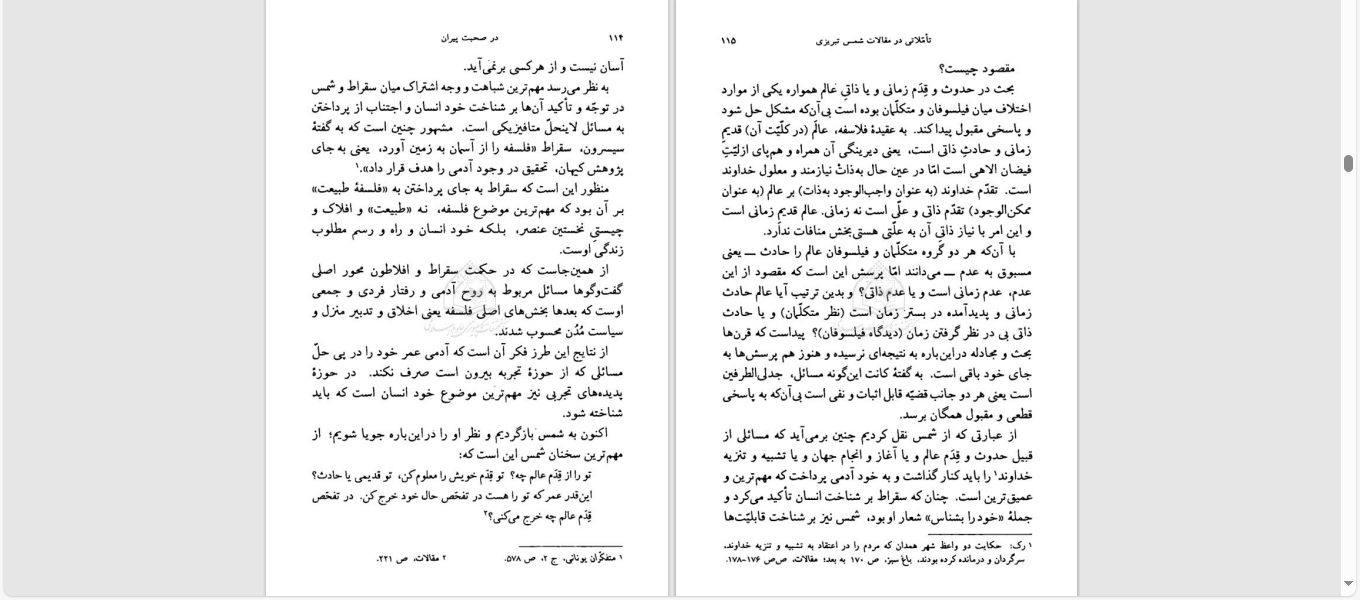 ۱۱۴ در صحبت پیران
آسان نیست و از هرکسی برنمی‌آید.
به نظر می‌رسد مهم‌ترین شباهت و وجه اشتراک میان سقراط و شمس
در توجّه و تأکید آن‌ها بر شناخت خود انسان و اجتناب از پرداختن
به مسائل لاینحلّ متافیزیکی است. مشهور چنین است که به گفتهٔ
سیسرون، سقراط «فلسفه را از آسمان به زمین آورد، یعنی به جای
پژوهش کیهان، تحقیق در وجود آدمی را هدف قرار داد».۱
منظور این است که سقراط به جای پرداختن به «فلسفهٔ طبیعت»
بر آن بود که مهم‌ترین موضوع فلسفه، نه «طبیعت» و افلاک و
چیستیِ نخستین عنصر، بلکه خود انسان و راه و رسم مطلوب
زندگی اوست.
از همین‌جاست که در حکمت سقراط و افلاطون محور اصلی
گفت‌وگوها مسائل مربوط به روح آدمی و رفتار فردی و جمعی
اوست که بعدها بخش‌های اصلی فلسفه یعنی اخلاق و تدبیر منزل و
سیاست مُدُن محسوب شدند.
از نتایج این طرز فکر آن است که آدمی عمر خود را در پی حلّ
مسائلی که از حوزهٔ تجربه بیرون است صرف نکند. در حوزهٔ
پدیده‌های تجربی نیز مهم‌ترین موضوع خود انسان است که باید
شناخته شود.
اکنون به شمس بازگردیم و نظر او را دراین‌باره جویا شویم؛ از
مهم‌ترین سخنان شمس این است که:
تو را از قِدَم عالم چه؟ تو قِدَم خویش را معلوم کن، تو قدیمی یا حادث؟
این‌قدر عمر که تو را هست در تفحّص حال خود خرج کن. در تفحّص
قِدَم عالم چه خرج می‌کنی؟۲
۱ متفکّران یونانی، ج ۲، ص ۵۷۸. ۲ مقالات، ص ۲۲۱.
تأمّلاتی در مقالات شمس تبریزی ۱۱۵
مقصود چیست؟
بحث در حدوث و قِدَم زمانی و یا ذاتیِ عالم همواره یکی از موارد
اختلاف میان فیلسوفان و متکلّمان بوده است بی‌آن‌که مشکل حل شود
و پاسخی مقبول پیدا کند. به عقیدهٔ فلاسفه، عالَم (در کلیّت آن) قدیمِ
زمانی و حادثِ ذاتی است، یعنی دیرینگی آن همراه و هم‌پای ازلیّتِ
فیضان الاهی است امّا در عین حال به‌ذاتْ نیازمند و معلول خداوند
است. تقدّم خداوند (به عنوان واجب‌الوجود به‌ذات) بر عالم (به عنوان
ممکن‌الوجود) تقدّم ذاتی و علّی است نه زمانی. عالم قدیم زمانی است
و این امر با نیاز ذاتیِ آن به علّتی هستی‌بخش منافات ندارد.
با آن‌که هر دو گروه متکلّمان و فیلسوفان عالم را حادث ــ یعنی
مسبوق به عدم ــ می‌دانند امّا پرسش این است که مقصود از این
عدم، عدم زمانی است و یا عدم ذاتی؟ و بدین ترتیب آیا عالم حادث
زمانی و پدیدآمده در بستر زمان است (نظر متکلّمان) و یا حادث
ذاتی بی در نظر گرفتن زمان (دیدگاه فیلسوفان)؟ پیداست که قرن‌ها
بحث و مجادله دراین‌باره به نتیجه‌ای نرسیده و هنوز هم پرسش‌ها به
جای خود باقی است. به گفتهٔ کانت این‌گونه مسائل، جدلی‌الطرفین
است یعنی هر دو جانب قضیّه قابل اثبات و نفی است بی‌آن‌که به پاسخی
قطعی و مقبول همگان برسد.
از عبارتی که از شمس نقل کردیم چنین برمی‌آید که مسائلی از
قبیل حدوث و قِدَم عالم و یا آغاز و انجام جهان و یا تشبیه و تنزیه
خداوند۱ را باید کنار گذاشت و به خود آدمی پرداخت که مهم‌ترین و
عمیق‌ترین است. چنان که سقراط بر شناخت انسان تأکید می‌کرد و
جملهٔ «خود را بشناس» شعار او بود، شمس نیز بر شناخت قابلیّت‌ها
۱ رک: حکایت دو واعظ شهر همدان که مردم را در اعتقاد به تشبیه و تنزیه خداوند،
سرگردان و درمانده کرده بودند. باغ سبز، ص ۱۷۰ به بعد؛ مقالات، صص ۱۷۶-۱۷۸.